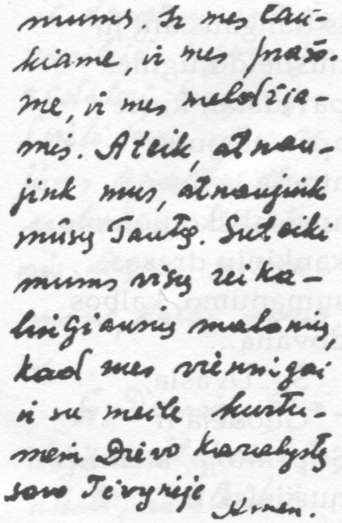 mums. Ir mes lau-
kiame, ir mes prašo-
me, ir mes meldžia-
mės. Ateik, atnau-
jink mus, atnaujink
mūsų Tautą. Suteiki
mums visų reika-
lingiausių malonių,
kad mes vieningai
ir su meile kurtu-
mėm Dievo Karalystę
savo Tėvynėje
Amen.